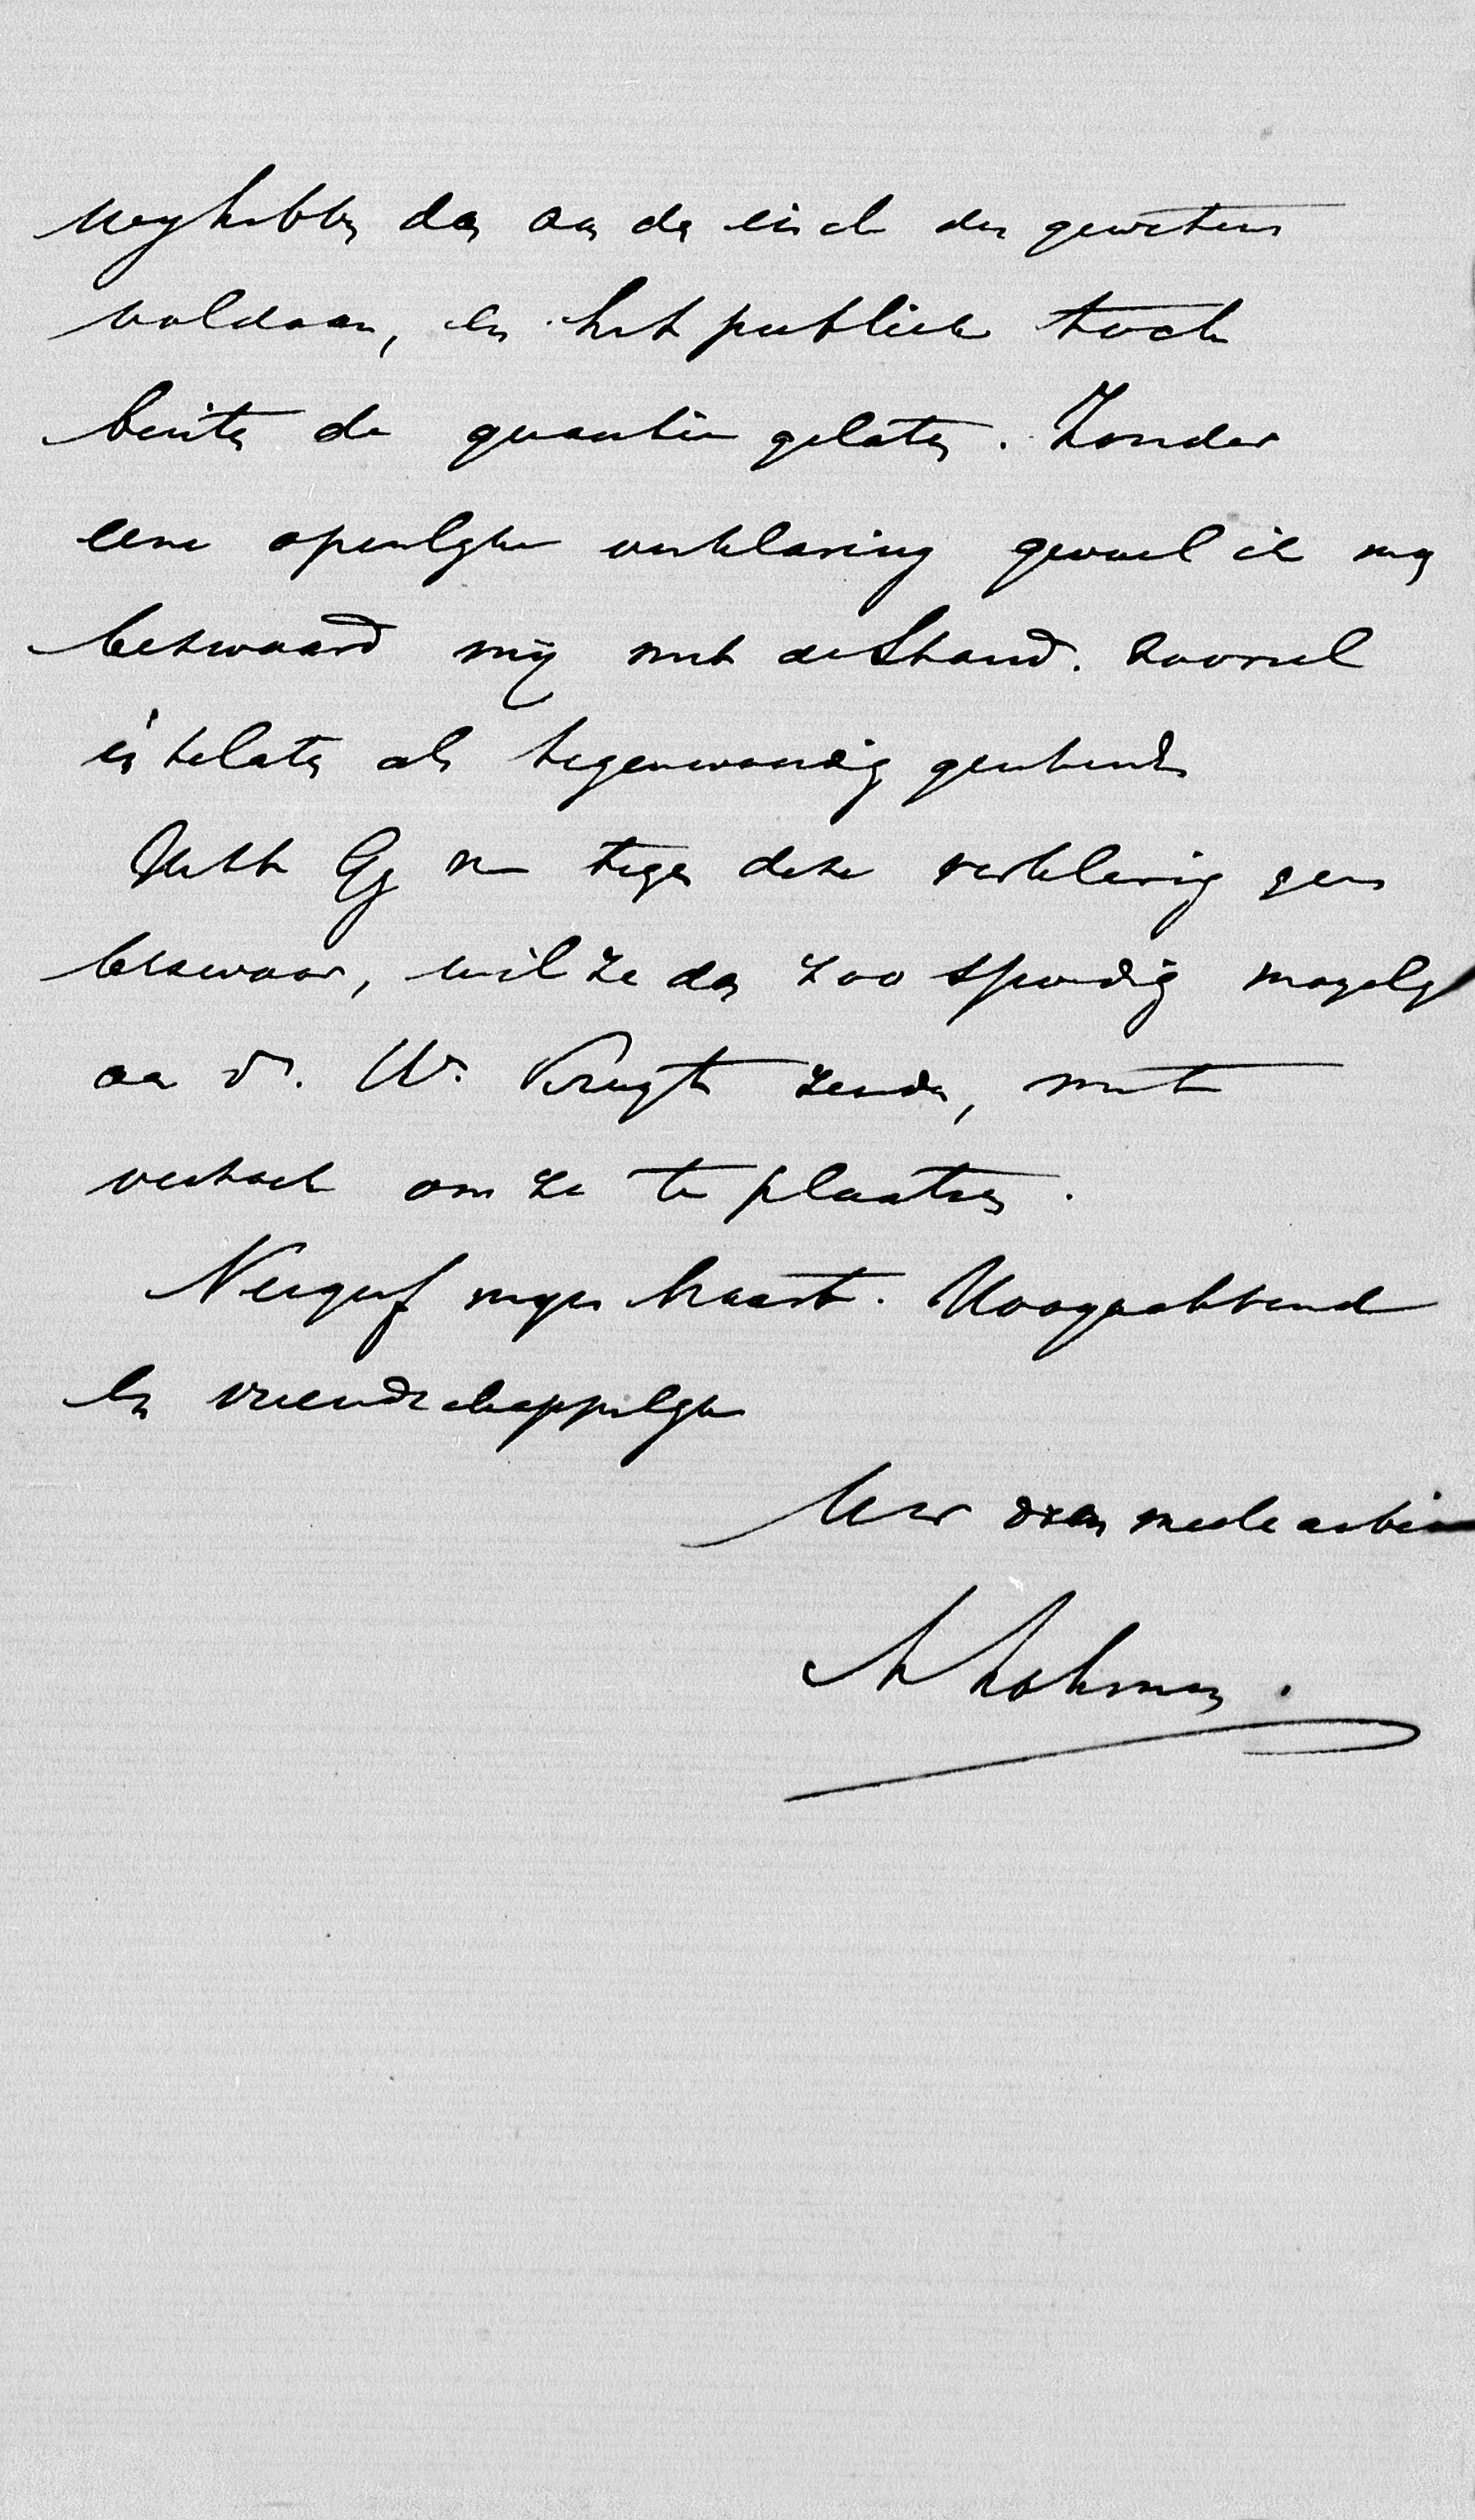 hebben dan aan den eisch des gewetens
voldaan, en het publiek toch
buiten de quaestie gelaten. Zonder
eene openlyke verklaring gevoel ik my
bezwaard mij met de Stand. zooveel
in te laten als tegenwoordig geschiedt
Hebt Gy nu tegen deze verklaring geen
bezwaar, wil ze dan zoo spoedig mogelyk
aan Dr. W. zenden, met
verzoek om ze te plaatsen.
Vergeef myn haast. Hoogachtend
en vriendschappelyk
Uw dien medearbeider
Lohman.